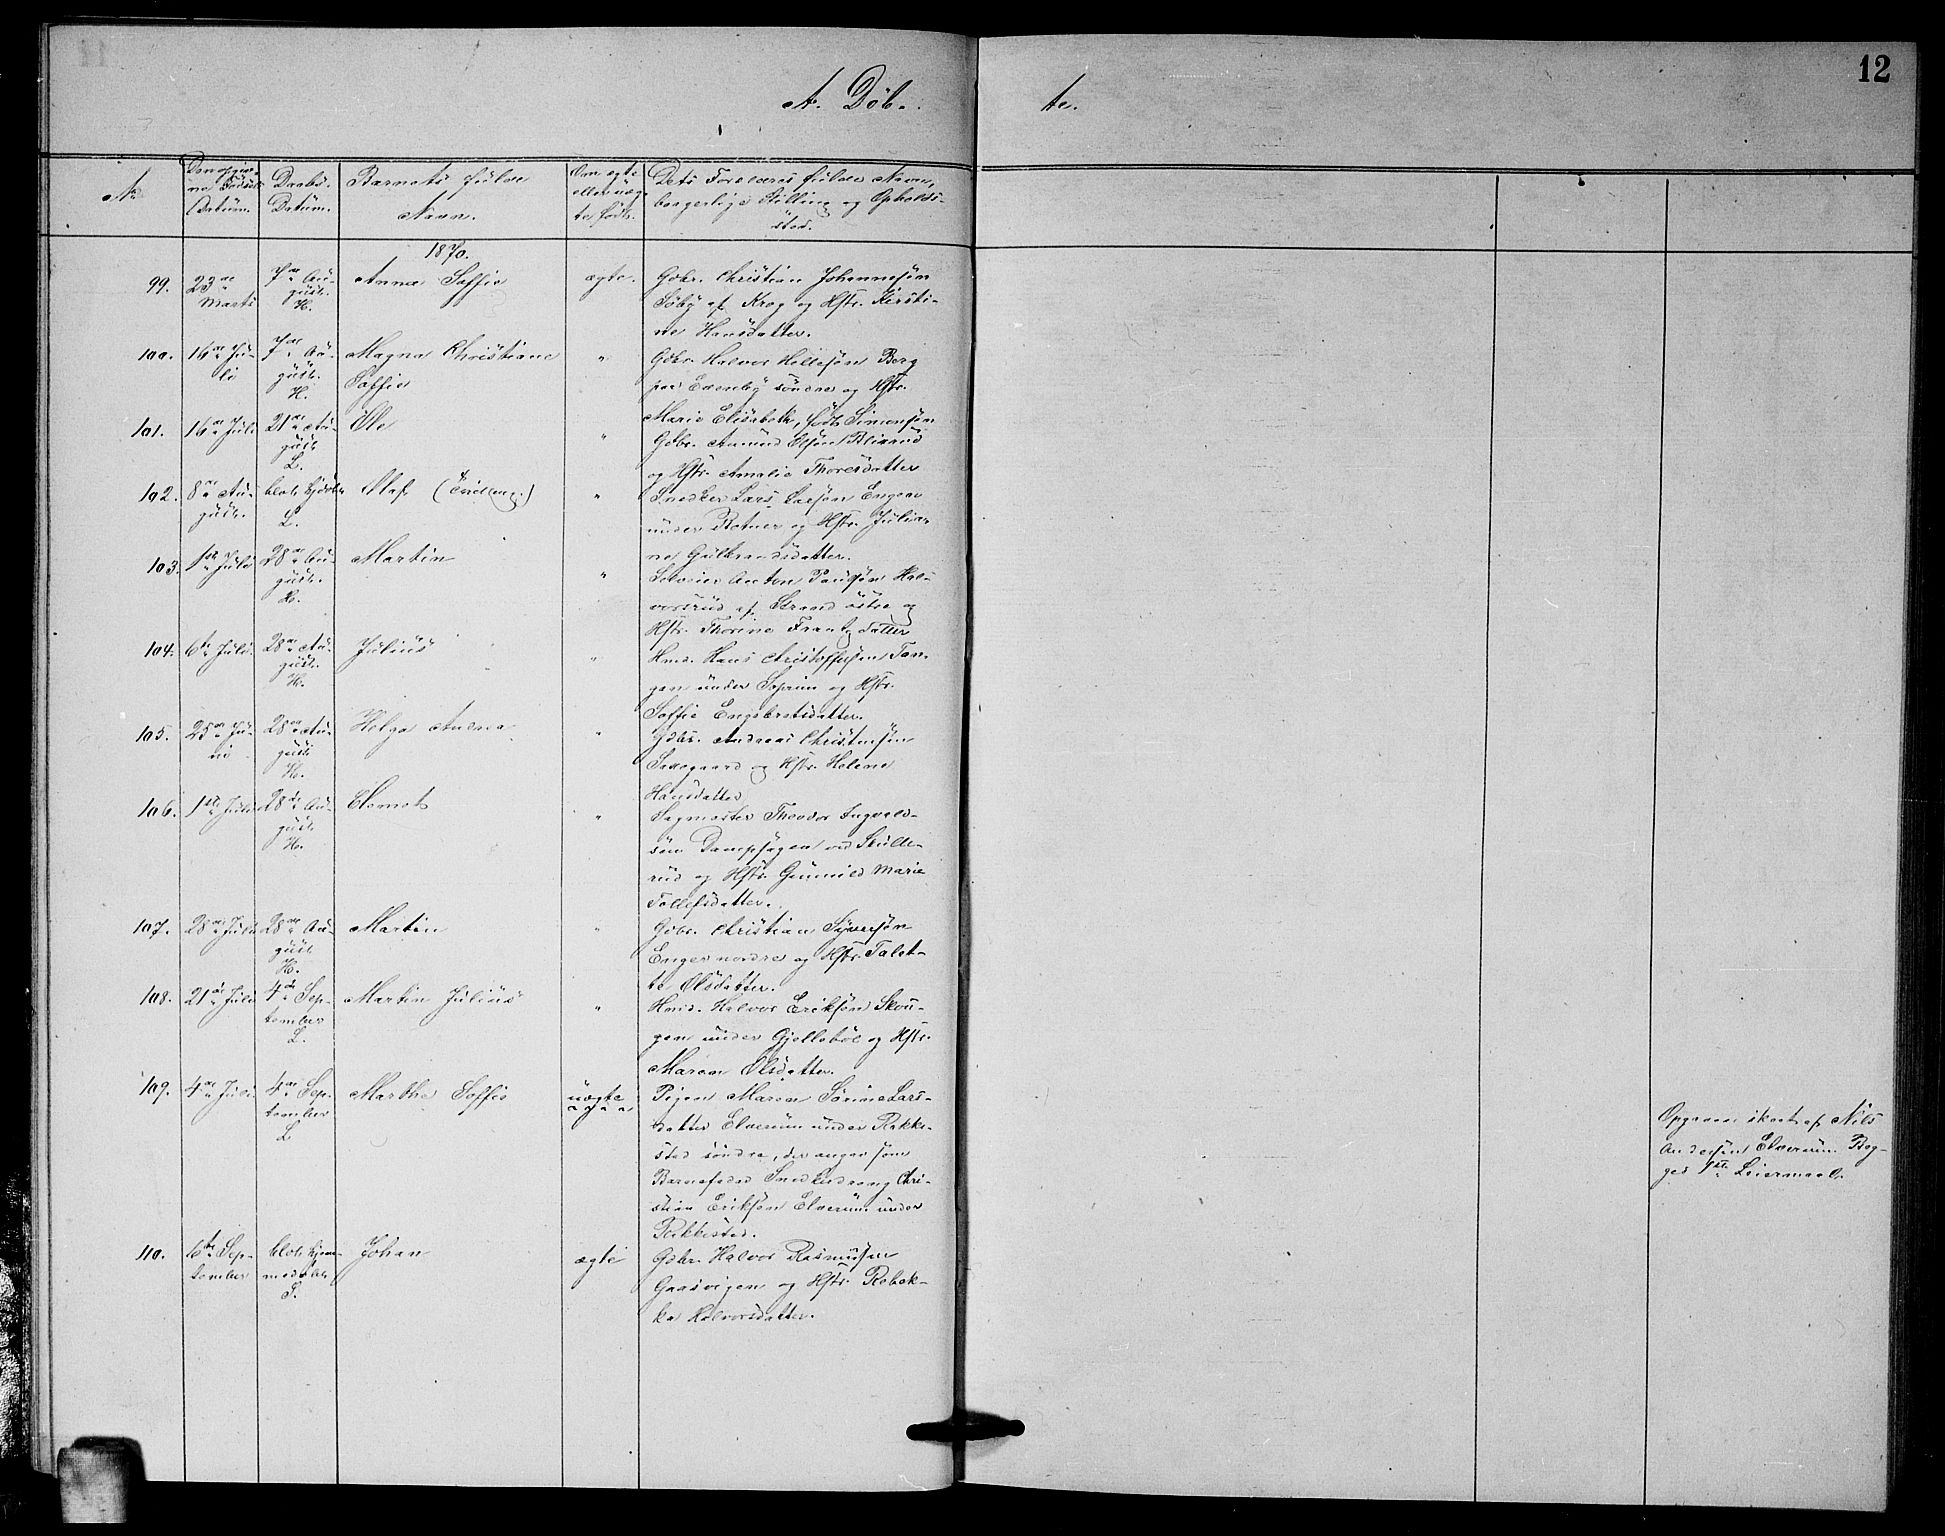 12
A. Döb-
te.
No
Den opgiv-
ne Fødsels
Datum.
Daabs-
Datum.
Barnets fulde
Navn.
Om ægte
eller uæg-
te født.
Dets Forældres fulde Navn,
borgerlige Stilling og Opholds-
sted.
1870.
99.
23de
Marts
7de Au-
gust.
H.
Anne Soffie
ægte.
Gdbr. Christian Johannesøn
Søby af Krog og Hstr. Kirsti-
ne Hansdatter.
100.
16de Ju-
li
7de Au-
gust.
H.
Magna Christiane
Soffie
"
Gdbr. Halvor Hellesøn Berg
paa Evenby søndre og Hstr.
Marie Elisabeth, født Simonsøn
101.
16de Juli
21de Au-
gust.
L.
Ole
"
Gdbr. Amund Olsøn Blixrud
og Hstr. Amalie Thoresdatter
102.
8de Au-
gust.
blot hjdøbt
L.
Olaf (Tvilling.)
"
Snedker Lars Larsøn Engen
under Rotner og Hstr. Julia-
ne Gulbrandsdatter.
103.
1ste Juli
28de Au-
gust.
H.
Martin
"
Selveier Anton Paulsøn Hal-
vorsrud af Strand østre og
Hstr. Thorine Frantzdatter
104.
6te Juli
28de Au-
gust.
H.
Julius
"
Hmd. Hans Christoffersen Tan-
gen under Soprim og Hstr.
Soffie Engebretsdatter.
105.
25de Ju-
ni
28de Au-
gust
H.
Helga Anena
"
Gdbr. Andreas Christensøn
Saxegaard og Hstr. Helene
Hansdatter
106.
1ste Juli
28de Au-
gust
H.
Clemet
"
Sagmester Theodor Ingvald-
søn Dampsagen ved Skulle-
rud og Hstr. Gunnild Marie
Tollefsdatter.
107.
28de Juli
28de Au-
gust
H.
Martin
"
Gdbr. Christian Syversøn
Enger nordre og Hstr. Talet-
te Olsdatter.
108.
21de Juli
4de Sep-
tember
L.
Martin Julius
"
Hmd. Halvor Eriksøn Skou-
gen under Gjellebøl og Hstr.
Maren Olsdatter.
109.
4de Juli
4de Sep-
tember
L
Marthe Soffie
uægte
Pigen Maren Sørine Lars-
datter Elverum under Rakke-
stad søndre, der angav som
Barnefader Snedkerdreng Chri-
stian Eriksøn Elverum under
Rakkestad.
Opgaven skeet af Nils
Andersøn Elverum. Beg-
ges 1ste Leiermaal.
110.
6te Sep-
tember
blot hjem-
medøbt
S.
Johan
ægte
Gdbr. Halvor Rasmusen
Gaasvigen og Hstr. Rebek-
ka Halvorsdatter.